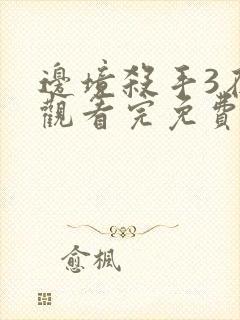 邊境殺手3在
觀看完免費
愈楓